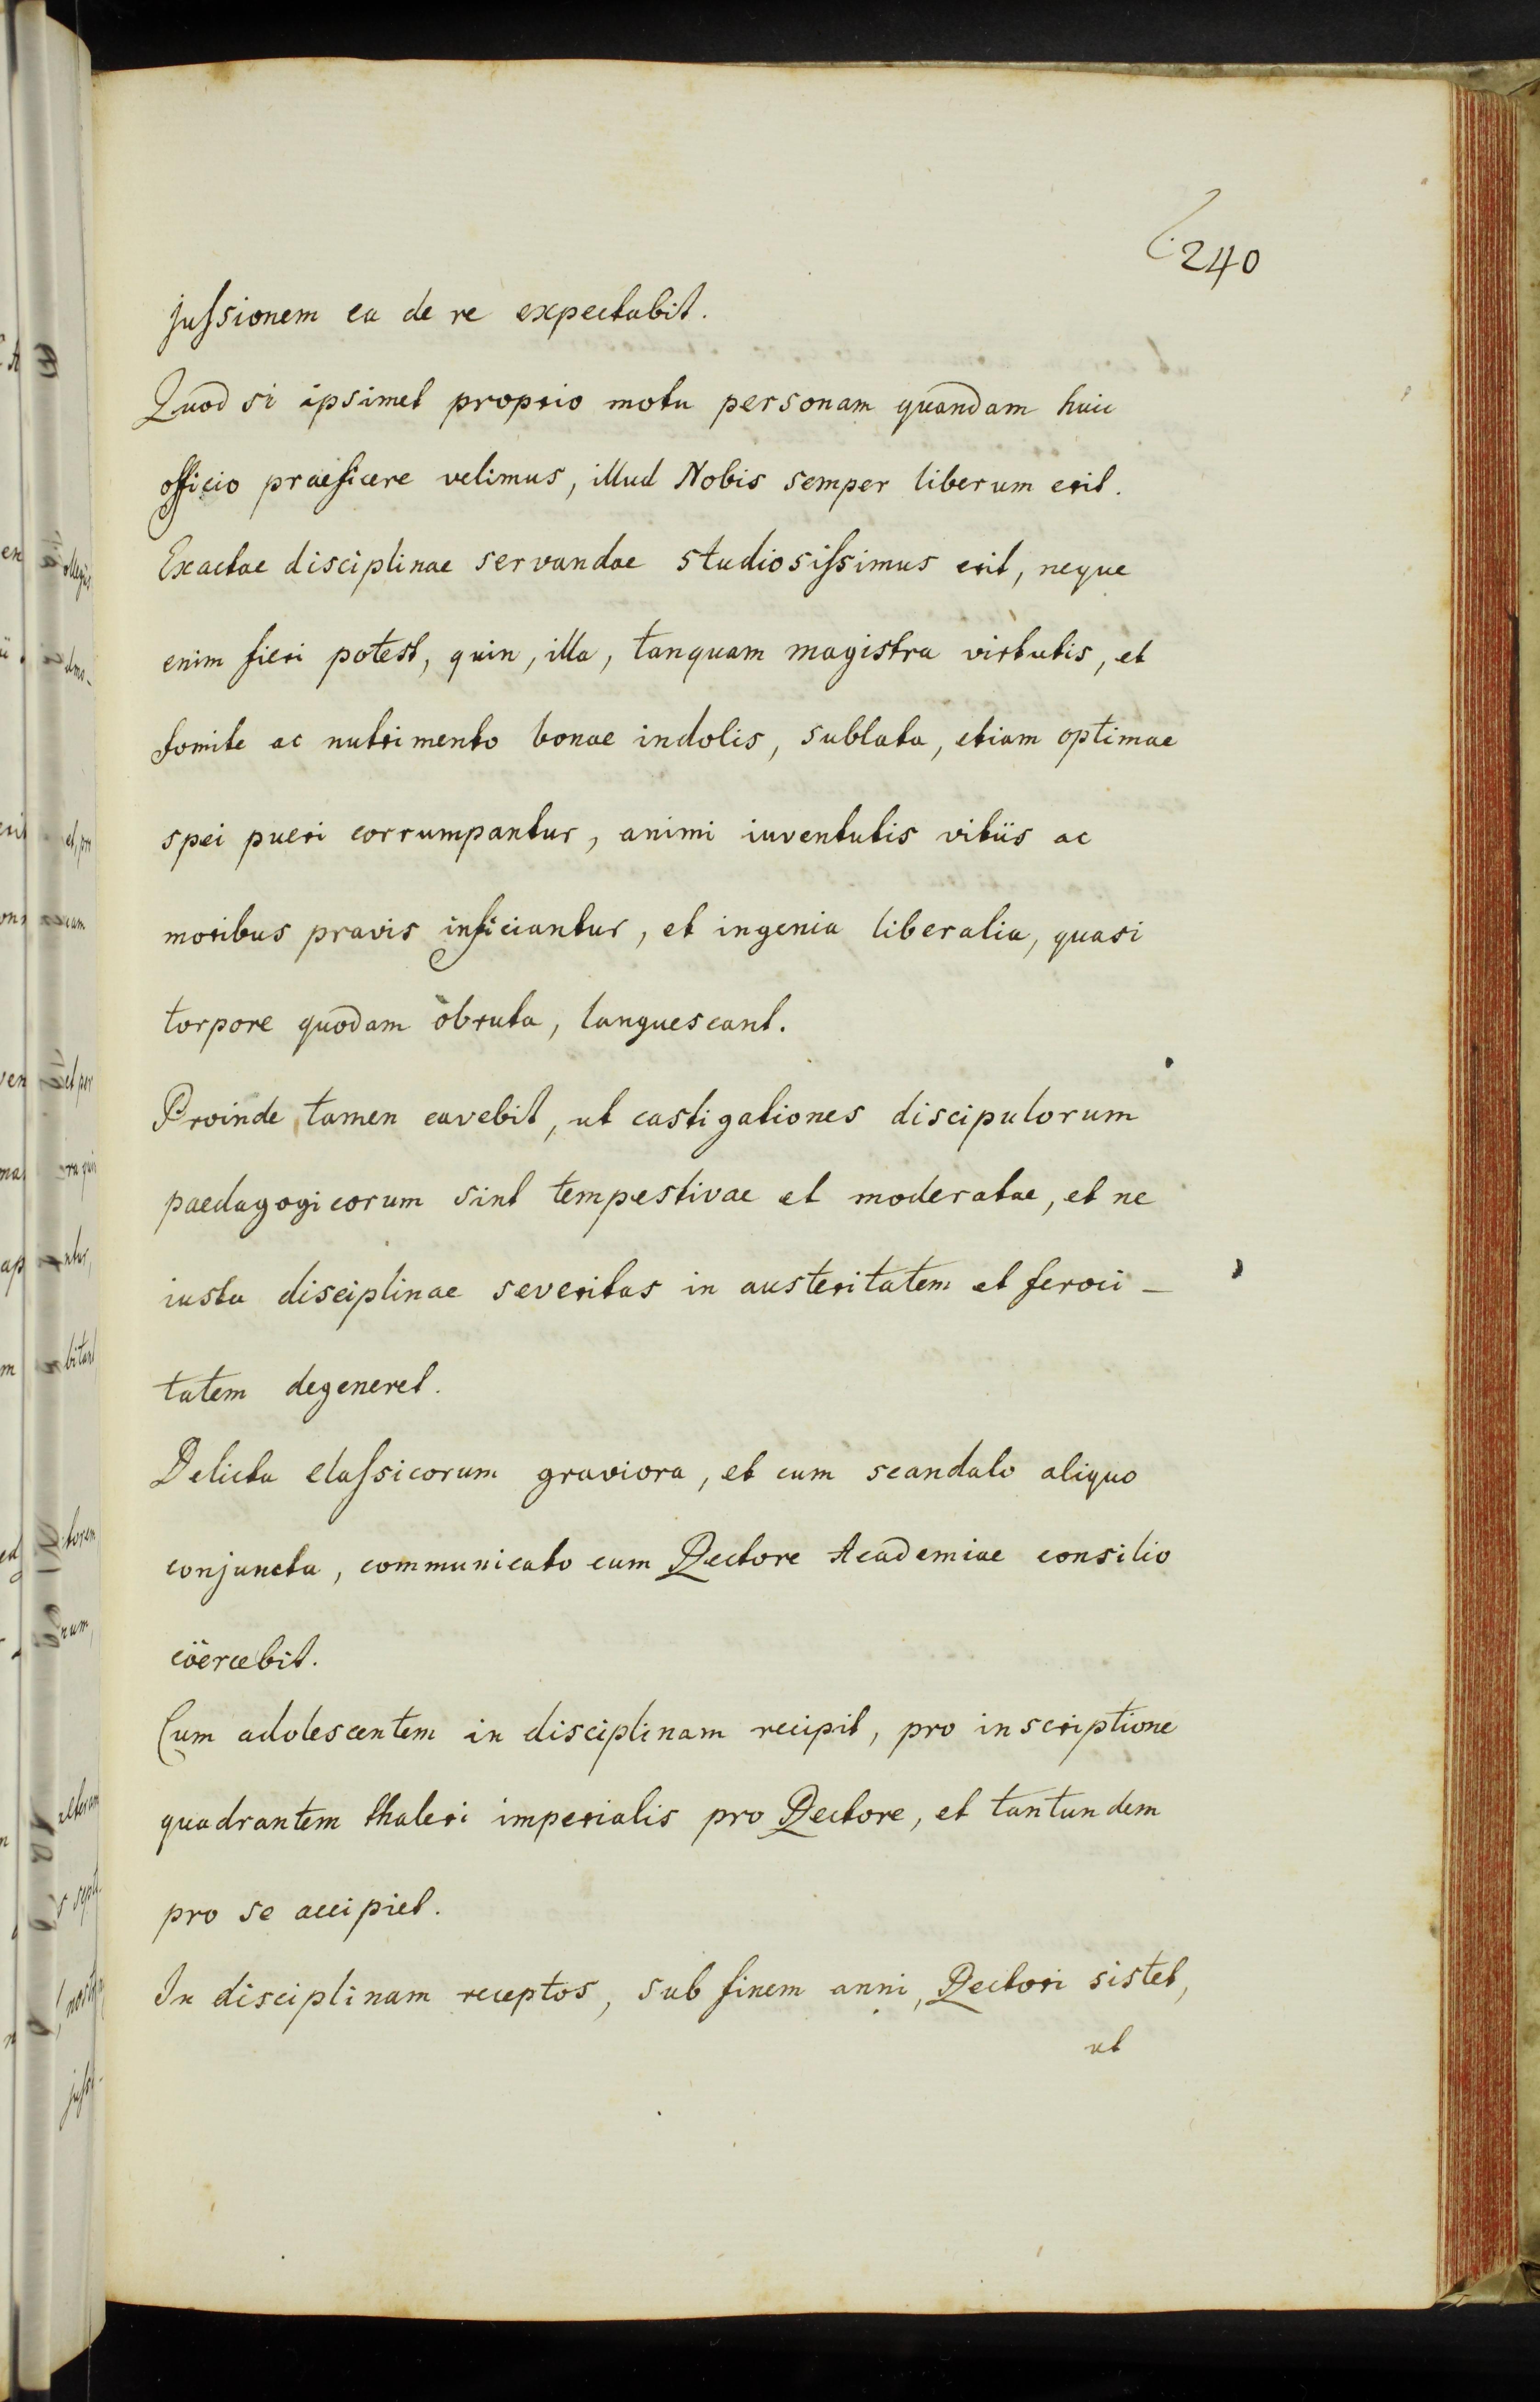 240
juſsionem ea de re expectabit.
Quod si ipsimet proprio motu personam quandam huic
officio praeficere velimus, illud Nobis semper liberum erit.
Exactae disciplinae servandae studiosiſsimus erit, neque
enim fieri potest, quin, illa, tanquam magistra virtutis, et
fomite ac nutrimento bonae indolis, sublata, etiam optimae
spei pueri corrumpantur, animi iuventutis vitiis ac
moribus pravis inficiantur, et ingenia liberalia, quasi
torpore quodam obruta, languescant.
Proinde tamen cavebit, ut castigationes discipulorum
paedagogicorum sint tempestivae et moderatae, et ne
iusta disciplinae severitas in austeritatem et feroci-
tatem degeneret.
Delicta claſsicorum graviora, et cum scandalo aliquo
conjuncta, communicato cum Rectore Academiae consilio
coërcebit.
Cum adolescentem in disciplinam recipit, pro inscriptione
quadrantem thaleri imperialis pro Rectore, et tantundem
pro se accipiet.
In disciplinam receptos, sub finem anni, Rectori sistet,
ut